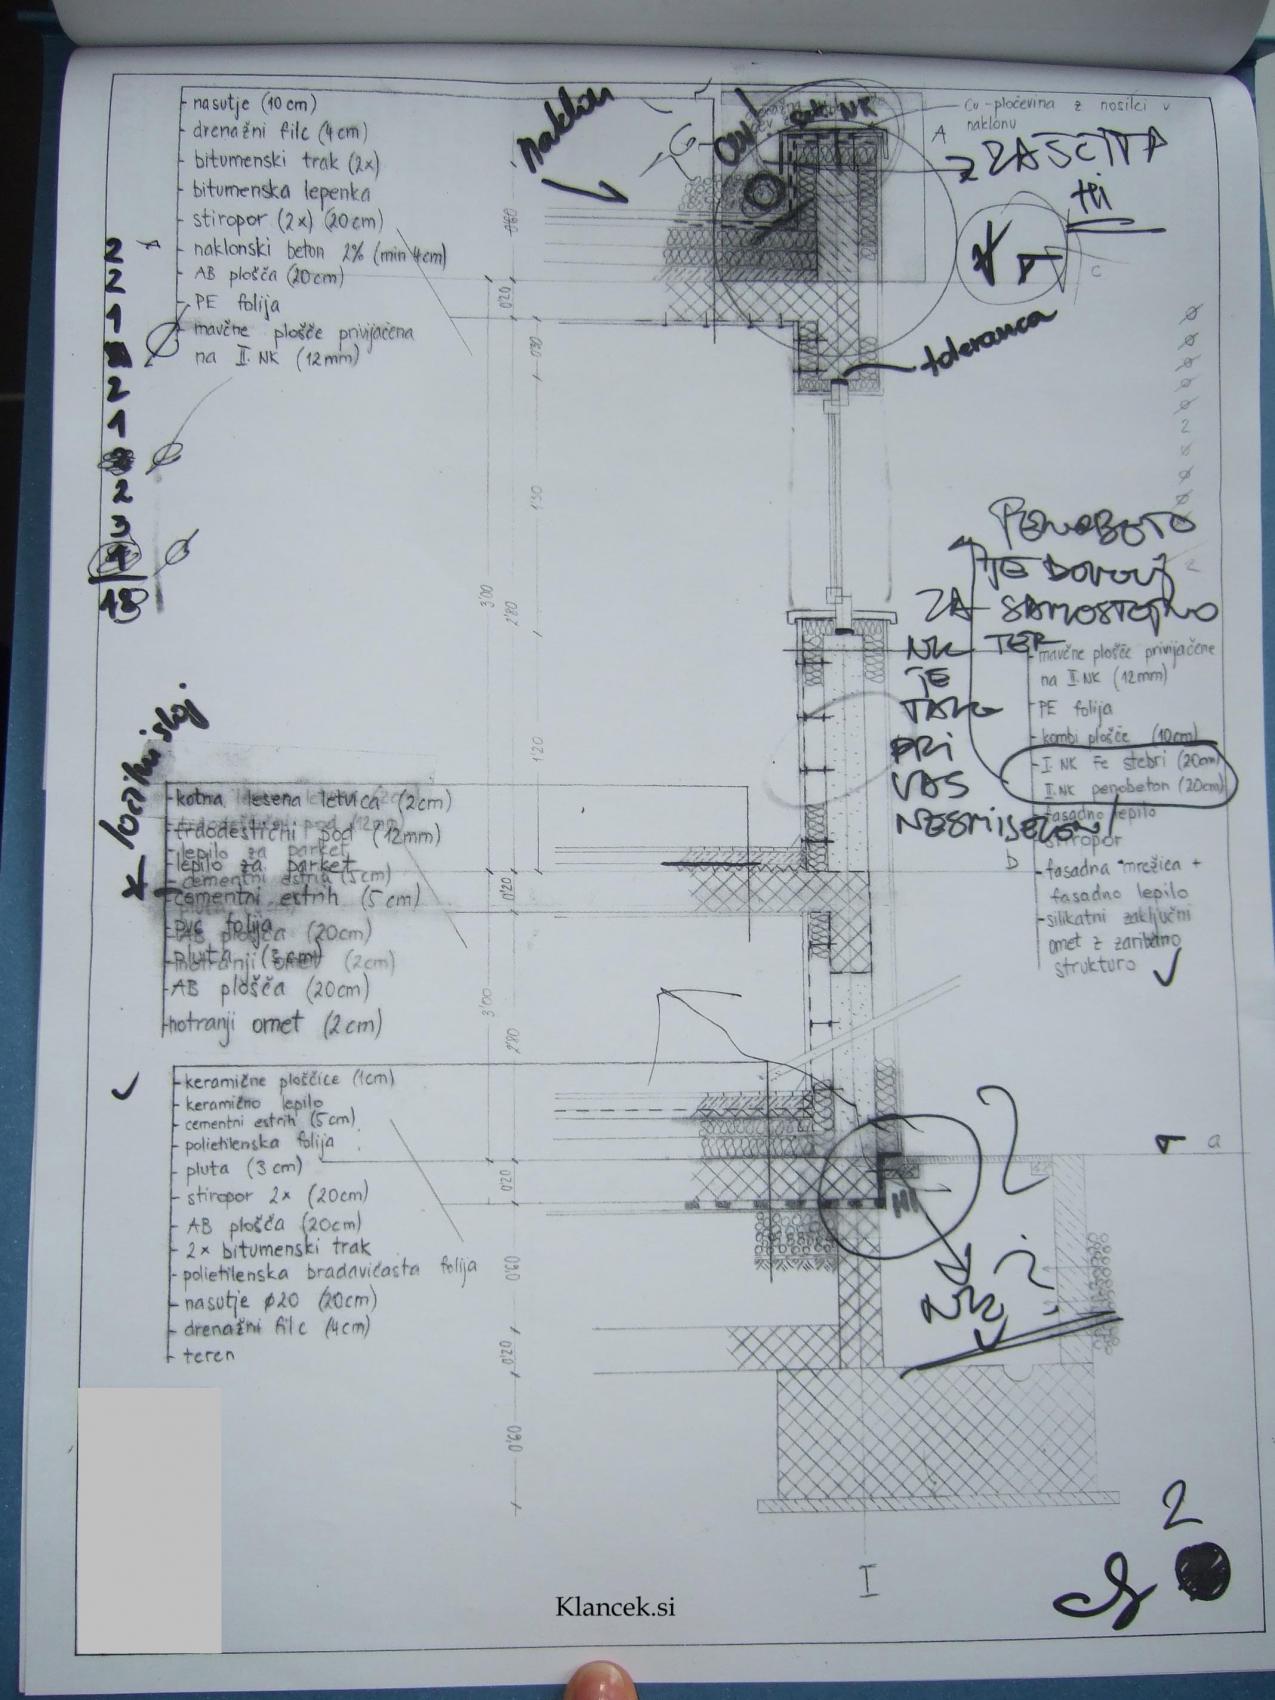 - nasutje (10 cm)
- drenažni filc (4 cm)
- bitumenski trak (2x)
- bitumenska lepenka
- stiropor (2x) (20 cm)
- naklonski beton 2% (min 4cm)
- AB plošča (20cm)
- PE folija
- mavčne plošče privijačena
na II. NK (12mm)
2
2
1
2
1
2
3
1
18
naklon
Cu-pločevina z nosilci v
naklonu
A
Z ZAŠČITA
C
toleranca
0'60
0'20
0'30
1'30
3'00
2'80
1'20
0'20
3'00
2'80
0'20
0'60
0'20
0'60
PENOBETO
JE DOVOLJ
ZA SAMOSTOJNO
NK TER
JE
TAKO
PRI
VAS
NESMISELON!
mavčne plošče privijačene
na II. NK (12mm)
- PE folija
- kombi plošče (10cm)
- I NK Fe stebri (20cm)
II. NK penobeton (20cm)
- fasadno lepilo
stiropor
D
- fasadna mrežica +
fasadno lepilo
- silikatni zaključni
omet z zaribano
strukturo
* ločilni sloj
- kotna lesena letvica (2cm)
- trdodestični pod (12mm)
- lepilo za parket
- lepilo za parket
- cementni estrih (5cm)
- cementni estrih (5cm)
- pvc folija
- AB plošča (20cm)
- pluta (3cm)
- notranji omet (2cm)
- AB plošča (20cm)
- notranji omet (2cm)
- keramične ploščice (1cm)
- keramično lepilo
- cementni estrih (5cm)
- polietilenska folija
- pluta (3 cm)
- stiropor 2x (20cm)
- AB plošča (20cm)
- 2x bitumenski trak
- polietilenska bradavičasta folija
- nasutje ø20 (20cm)
- drenažni filc (4cm)
- teren
a
HI
I
2
Klancek.si